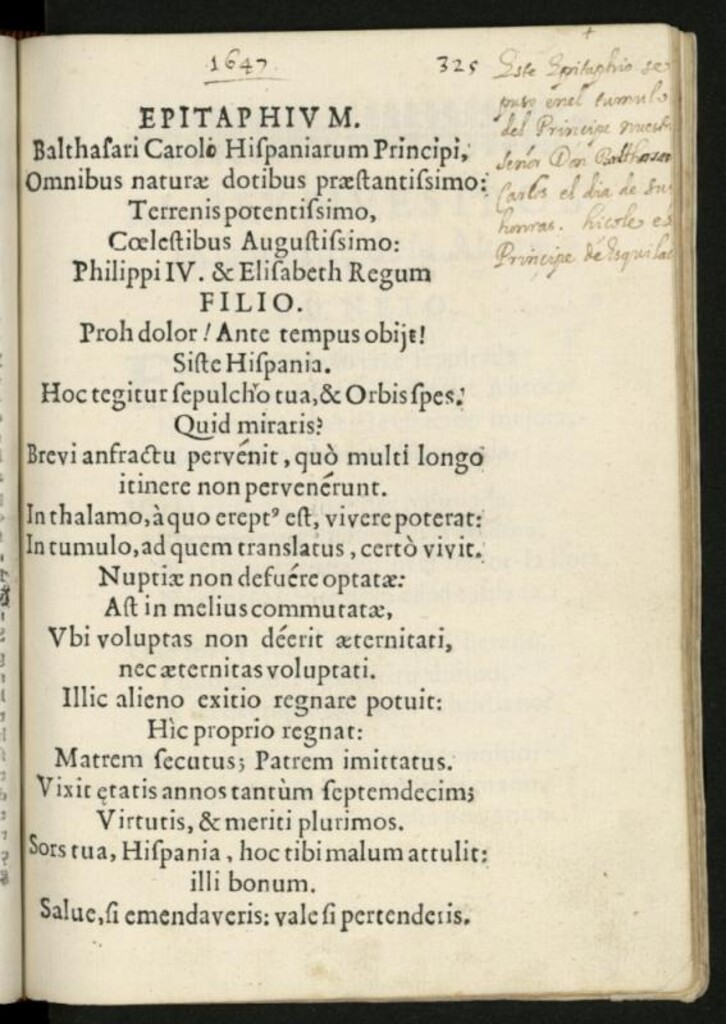 1647
325
EPITAPHIVM.
Balthasari Carolo Hiſpaniarum Principi,
Omnibus naturæ dotibus præſtantiſsimo:
Terrenis potentiſsimo,
Cœleſtibus Auguſtiſsimo:
Philippi IV. & Eliſabeth Regum
FILIO.
Proh dolor! Ante tempus obijt!
Siſte Hiſpania.
Hoc tegitur ſepulchro tua, & Orbis ſpes.
Quid miraris?
Brevi anfractu pervénit, quò multi longo
itinere non pervenérunt.
In thalamo, à quo ereptꝰ eſt, vivere poterat:
In tumulo, ad quem translatus, certò vivit.
Nuptiæ non defuére optatæ:
Aſt in melius commutatæ,
Vbi voluptas non déerit æternitati,
nec æternitas voluptati.
Illic alieno exitio regnare potuit:
Hìc proprio regnat:
Matrem ſecutus; Patrem imittatus.
Vixit ętatis annos tantùm ſeptemdecim;
Virtutis, & meriti plurimos.
Sors tua, Hiſpania, hoc tibi malum attulit:
illi bonum.
Salue, ſi emendaveris: vale ſi pertenderis.
Este Epitaphio se
puso enel tumulo
del Principe nuestr
señor Don Balthasar
Carlos el dia de su
honras. hiçole e
Principe de Esquilac